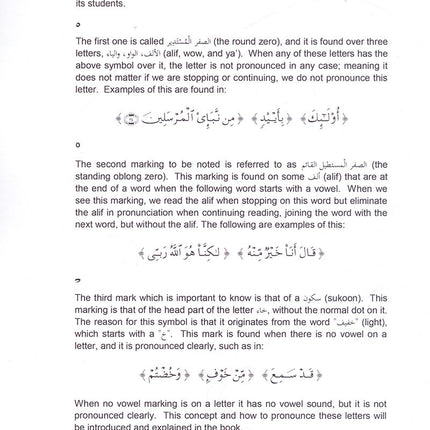 its students.
The first one is called الصفر المستدير (the round zero), and it is found over three
letters, الألف، الواو، والياء (alif, wow, and ya'). When any of these letters has the
above symbol over it, the letter is not pronounced in any case; meaning it
does not matter if we are stopping or continuing, we do not pronounce this
letter. Examples of this are found in:
﴿ أُوْلَٰٓئِكَ ﴾ ﴿ بِأَيْيْدٍ ﴾ ﴿ مِن نَّبَإِىْ ٱلْمُرْسَلِينَ ﴾
The second marking to be noted is referred to as الصفر المستطيل القائم (the
standing oblong zero). This marking is found on some ألف (alif) that are at
the end of a word when the following word starts with a vowel. When we
see this marking, we read the alif when stopping on this word but eliminate
the alif in pronunciation when continuing reading, joining the word with the
next word, but without the alif. The following are examples of this:
﴿ قَالَ أَنَا۠ خَيْرٌ مِّنْهُ ﴾ ﴿ لَّٰكِنَّا۠ هُوَ ٱللَّهُ رَبِّى ﴾
The third mark which is important to know is that of a سكون (sukoon). This
marking is that of the head part of the letter خاء, without the normal dot on it.
The reason for this symbol is that it originates from the word "خفيف" (light),
which starts with a "خ". This mark is found when there is no vowel on a
letter, and it is pronounced clearly, such as in:
﴿ قَدْ سَمِعَ ﴾ ﴿ مِّنْ خَوْفٍ ﴾ ﴿ وَخُضْتُمْ ﴾
When no vowel marking is on a letter it has no vowel sound, but it is not
pronounced clearly. This concept and how to pronounce these letters will
be introduced and explained in the book.